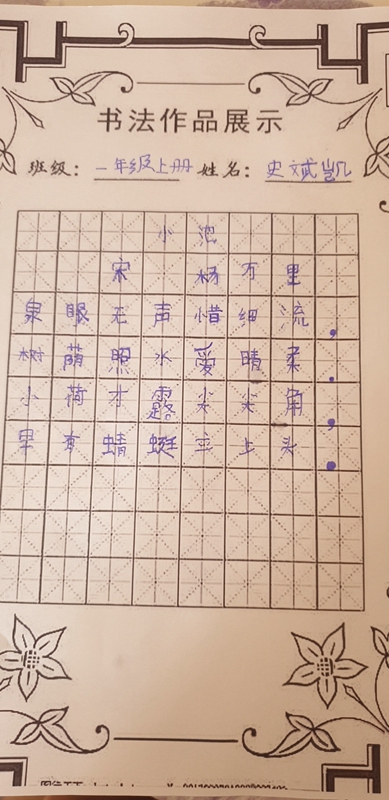 书法作品展示
班级：一年级上册 姓名：史斌凯
小池
宋 杨万里
泉眼无声惜细流，
树荫照水爱晴柔.
小荷才露尖尖角，
早有蜻蜓立上头.